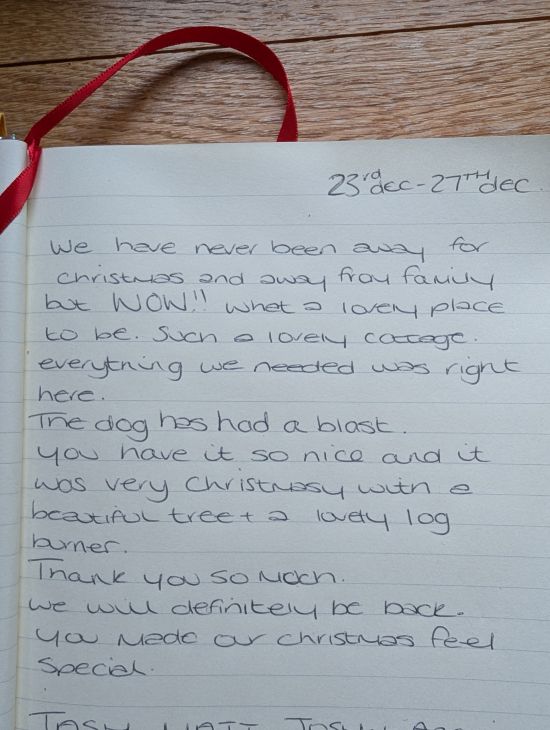 23rd dec - 27TH dec
We have never been away for
christmas and away from family
but WOW!! What a lovely place
to be. Such a lovely cottage.
everything we needed was right
here.
The dog has had a blast.
You have it so nice and it
was very Christmasy with a
beautiful tree + a lovely log
burner.
Thank you so much.
We will definitely be back.
You made our christmas feel
special.